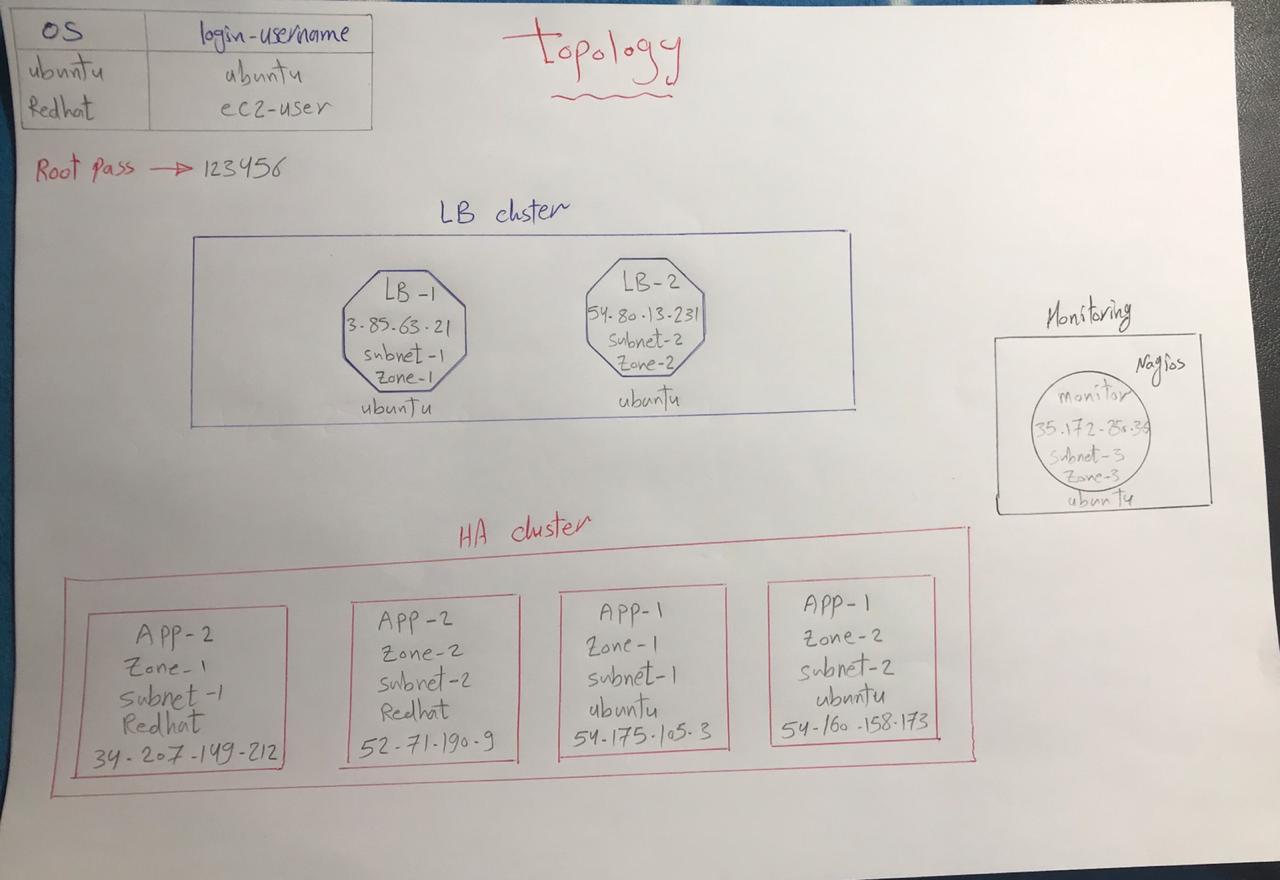 topology
OS login-username
ubuntu ubuntu
Redhat ec2-user
Root Pass → 123456
LB cluster
LB-1
3.85.63.21
subnet-1
Zone-1
ubuntu
LB-2
54.80.13.231
subnet-2
Zone-2
ubuntu
Monitoring
Nagios
monitor
subnet-3
Zone-3
ubuntu
HA cluster
APP-2
Zone-1
Subnet-1
Redhat
34.207.149.212
APP-2
Zone-2
subnet-2
Redhat
52.71.190.9
APP-1
Zone-1
subnet-1
ubuntu
54.175.105.3
APP-1
Zone-2
subnet-2
ubuntu
54.160.158.173